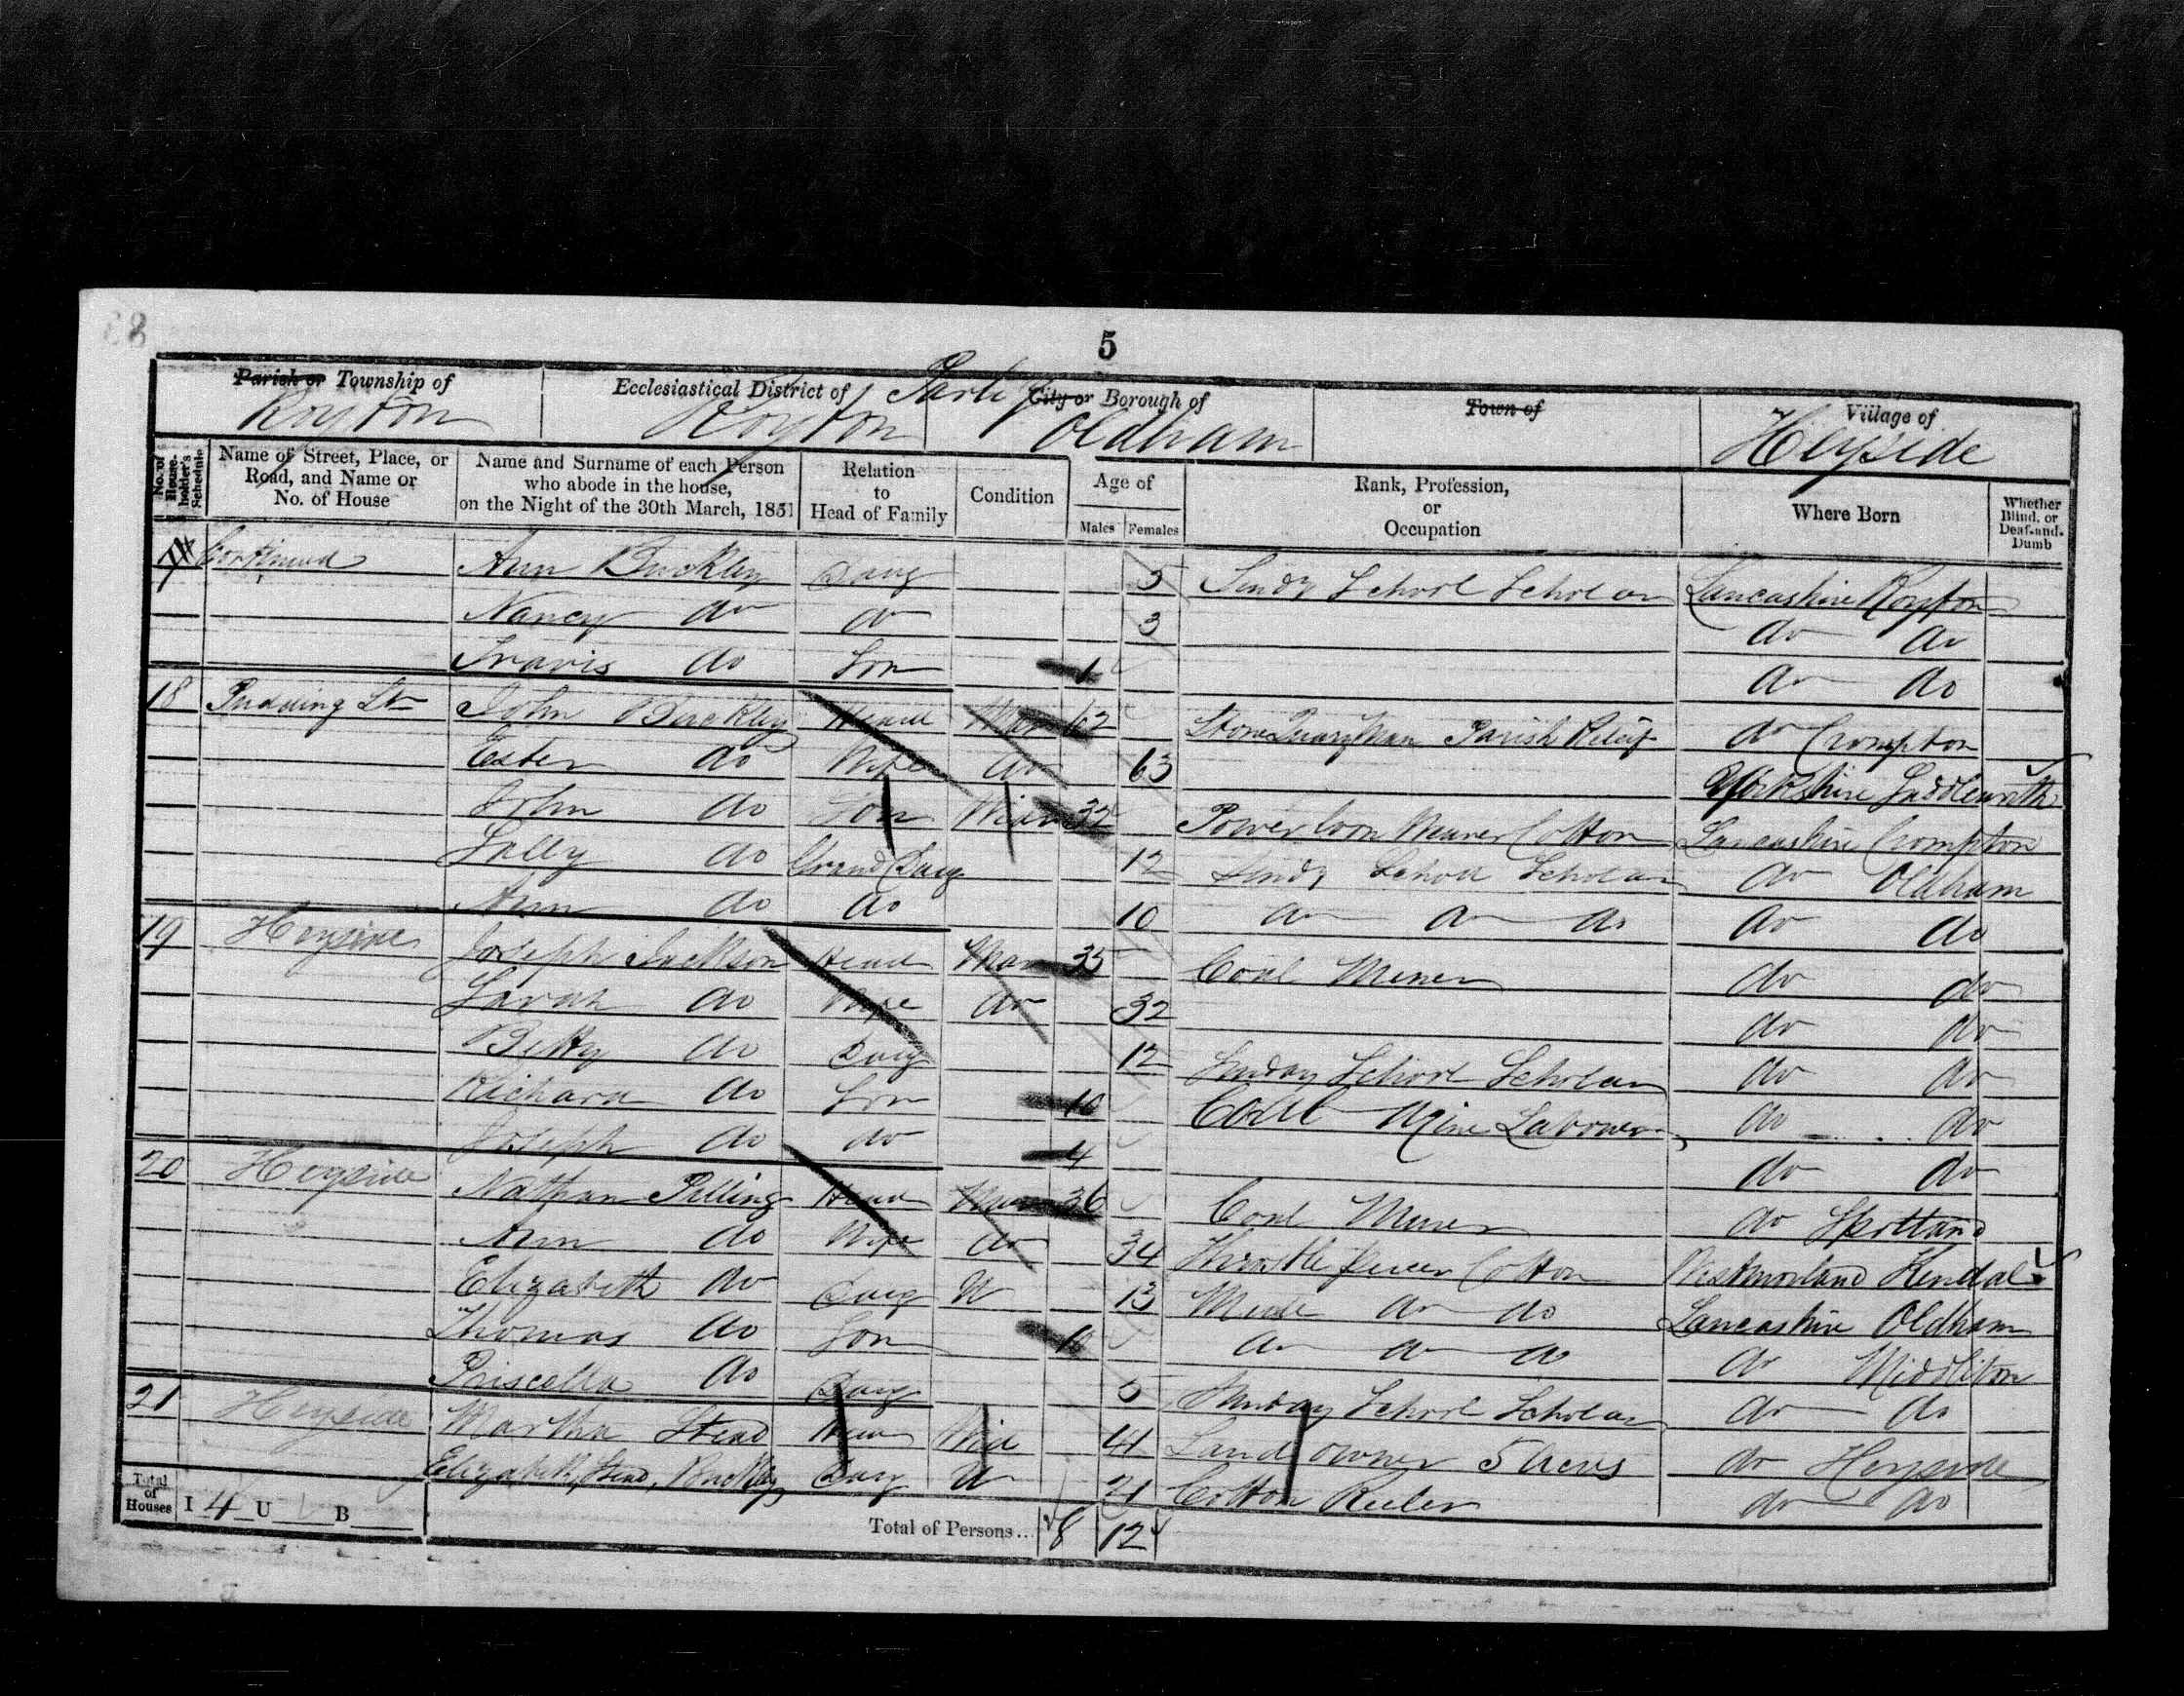 5
Parish or Township of Ecclesiastical District of Part of City or Borough of Town of Village of
Royton Royton Oldham Heyside
No. of House-holder's Schedule Name of Street, Place, or Road, and Name or No. of House Name and Surname of each Person who abode in the house, on the Night of the 30th March, 1851 Relation to Head of Family Condition Age of Males Females Rank, Profession, or Occupation Where Born Whether Blind, or Deaf-and-Dumb
Continued Ann Buckley Daug 5 Sundy School Scholar Lancashire Royton
Nancy do do 3 do do
Travis do Son 1 do do
18 Pudding St John Buckley Head Mar 62 Stone Quaryman Parish Relief do Crompton
Ester do Wife do 63 Yorkshire Saddlewoth
John do Son Widr Powerloom Weaver Cotton Lancashire Crompton
Sally do Grand Daug 12 Sundy School Scholar do Oldham
Ann do do 10 do do do do do
19 Heyside Joseph Jackson Head Mar 35 Coal Miner do do
Sarah do Wife do 32 do do
Betty do Daug 12 Sunday School Scholar do do
Richard do Son 10 Coal Mine Laborer do do
Joseph do do 4 do do
20 Heyside Nathan Pilling Head Mar 36 Coal Miner do Spotland
Ann do Wife do 34 Throstle Piecer Cotton Westmorland Kendal
Elizabeth do Daug U 13 Mule do do Lancashire Oldham
Thomas do Son 10 do do do do Middleton
Priscella do Daug 5 Sunday School Scholar do do
21 Heyside Martha Stead Head Wid 41 Land owner 5 Acres do Heyside
Elizabeth Stead Buckley Daug U 21 Cotton Reeler do do
Total of Houses I 4 U B Total of Persons... 8 12